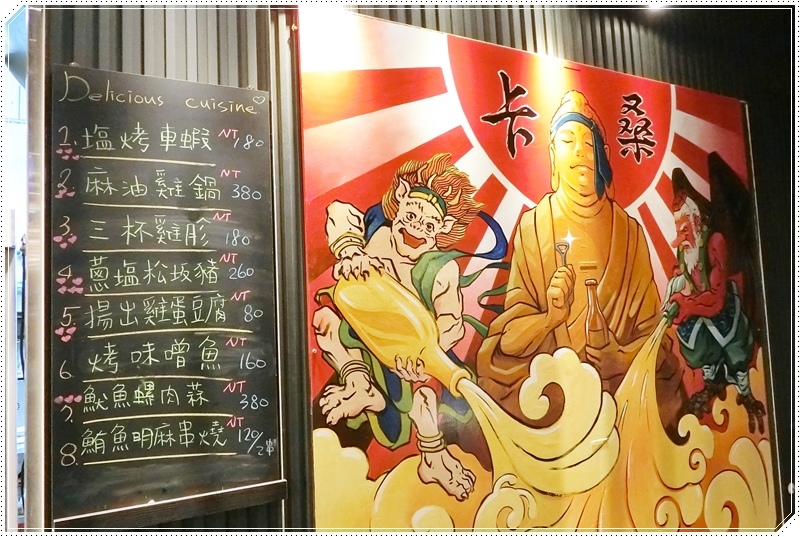 Delicious cuisine
1. 塩烤車蝦 NT 180
2. 麻油雞鍋 NT 380
3. 三杯雞胗 NT 180
4. 蔥塩松坂豬 NT 260
5. 揚出雞蛋豆腐 NT 80
6. 烤味噌魚 NT 160
7. 魷魚螺肉蒜 NT 380
8. 鮪魚明麻串燒 NT 120/2串
卡桑